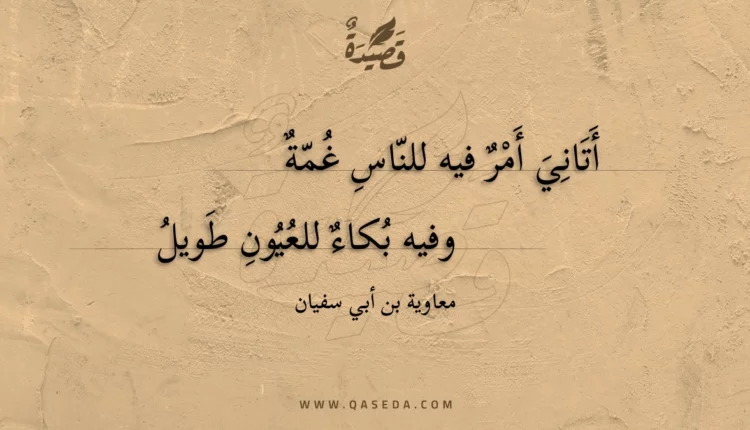 قَصِيدَةٌ
أَتَانِيَ أَمْرٌ فيه للنّاسِ غُمّةٌ
وفيه بُكاءٌ للعُيُونِ طَويلُ
معاوية بن أبي سفيان
WWW.QASEDA.COM